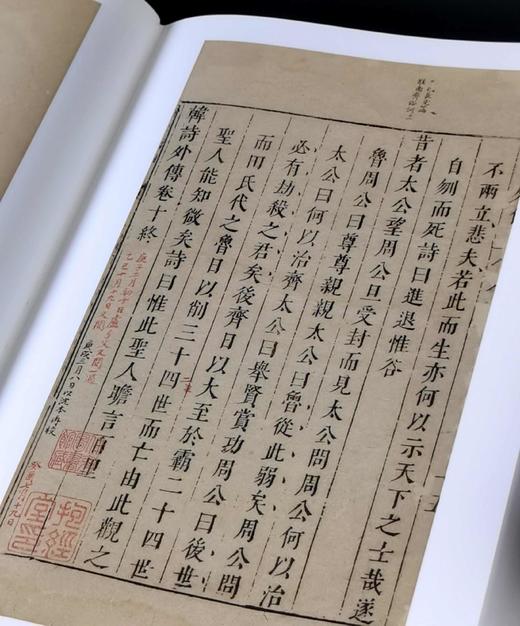 不兩立悲夫若此而生亦何以示天下之士哉遂
自刎而死詩曰進退惟谷
昔者太公望周公旦受封而見太公問周公何以治
魯周公曰尊尊親親太公曰魯從此弱矣周公問
太公曰何以治齊太公曰舉賢賞功周公曰後世
必有劫殺之君矣後齊日以大至於霸二十四世
而田氏代之魯日以削三十四世而亡由此觀之
聖人能知微矣詩曰惟此聖人瞻言百里
韓詩外傳卷十終
庚子三月初十日盧文弨閱
乙巳十月十九日又閱
庚戌三月八日以沈本再校
抱經堂印